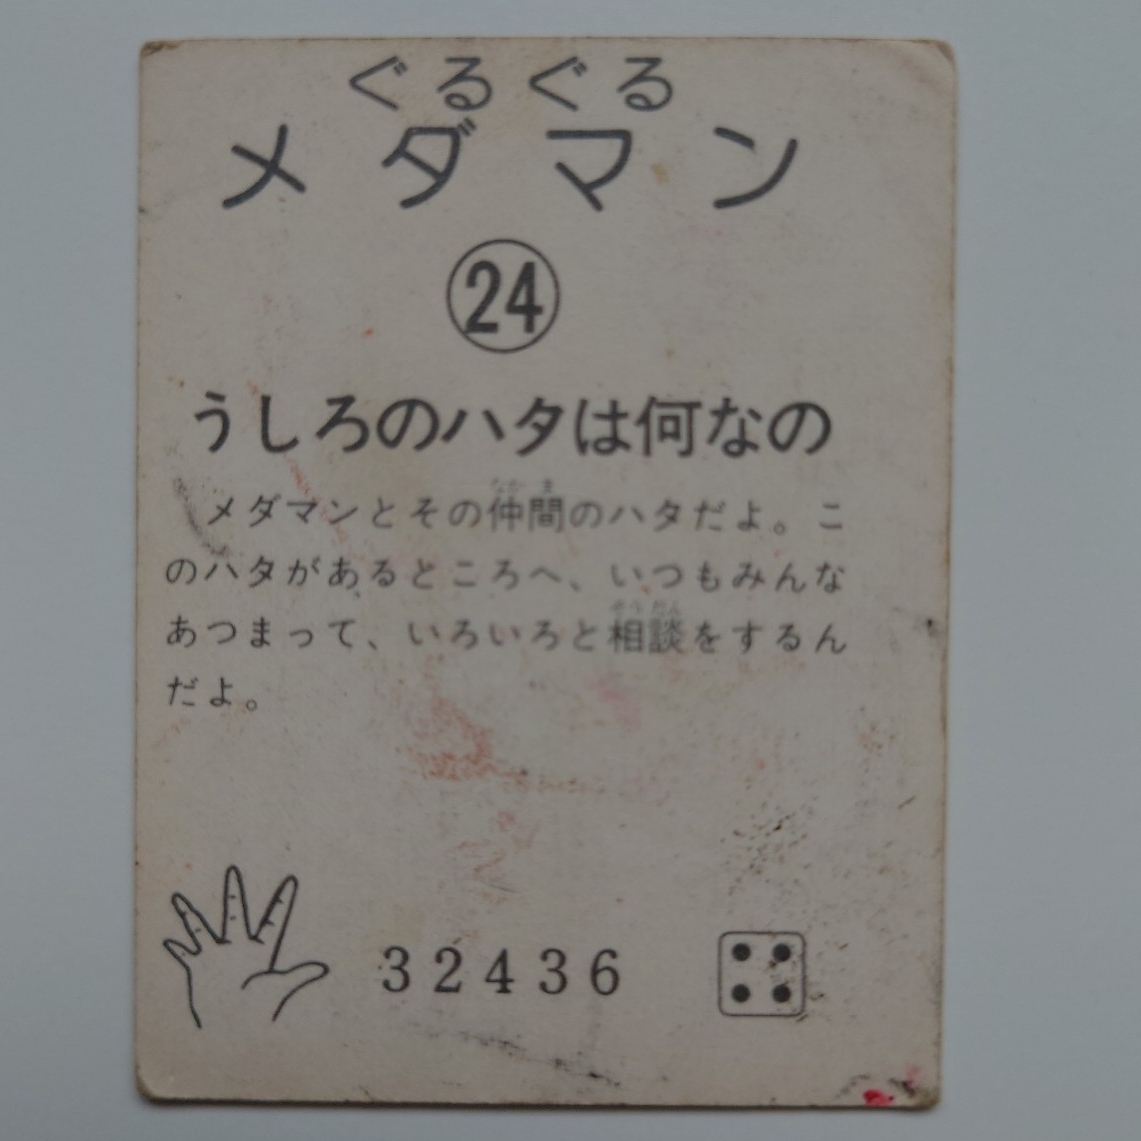 ぐるぐる
メダマン
㉔
うしろのハタは何なの
メダマンとその仲間のハタだよ。こ
のハタがあるところへ、いつもみんな
あつまって、いろいろと相談をするん
だよ。
32436